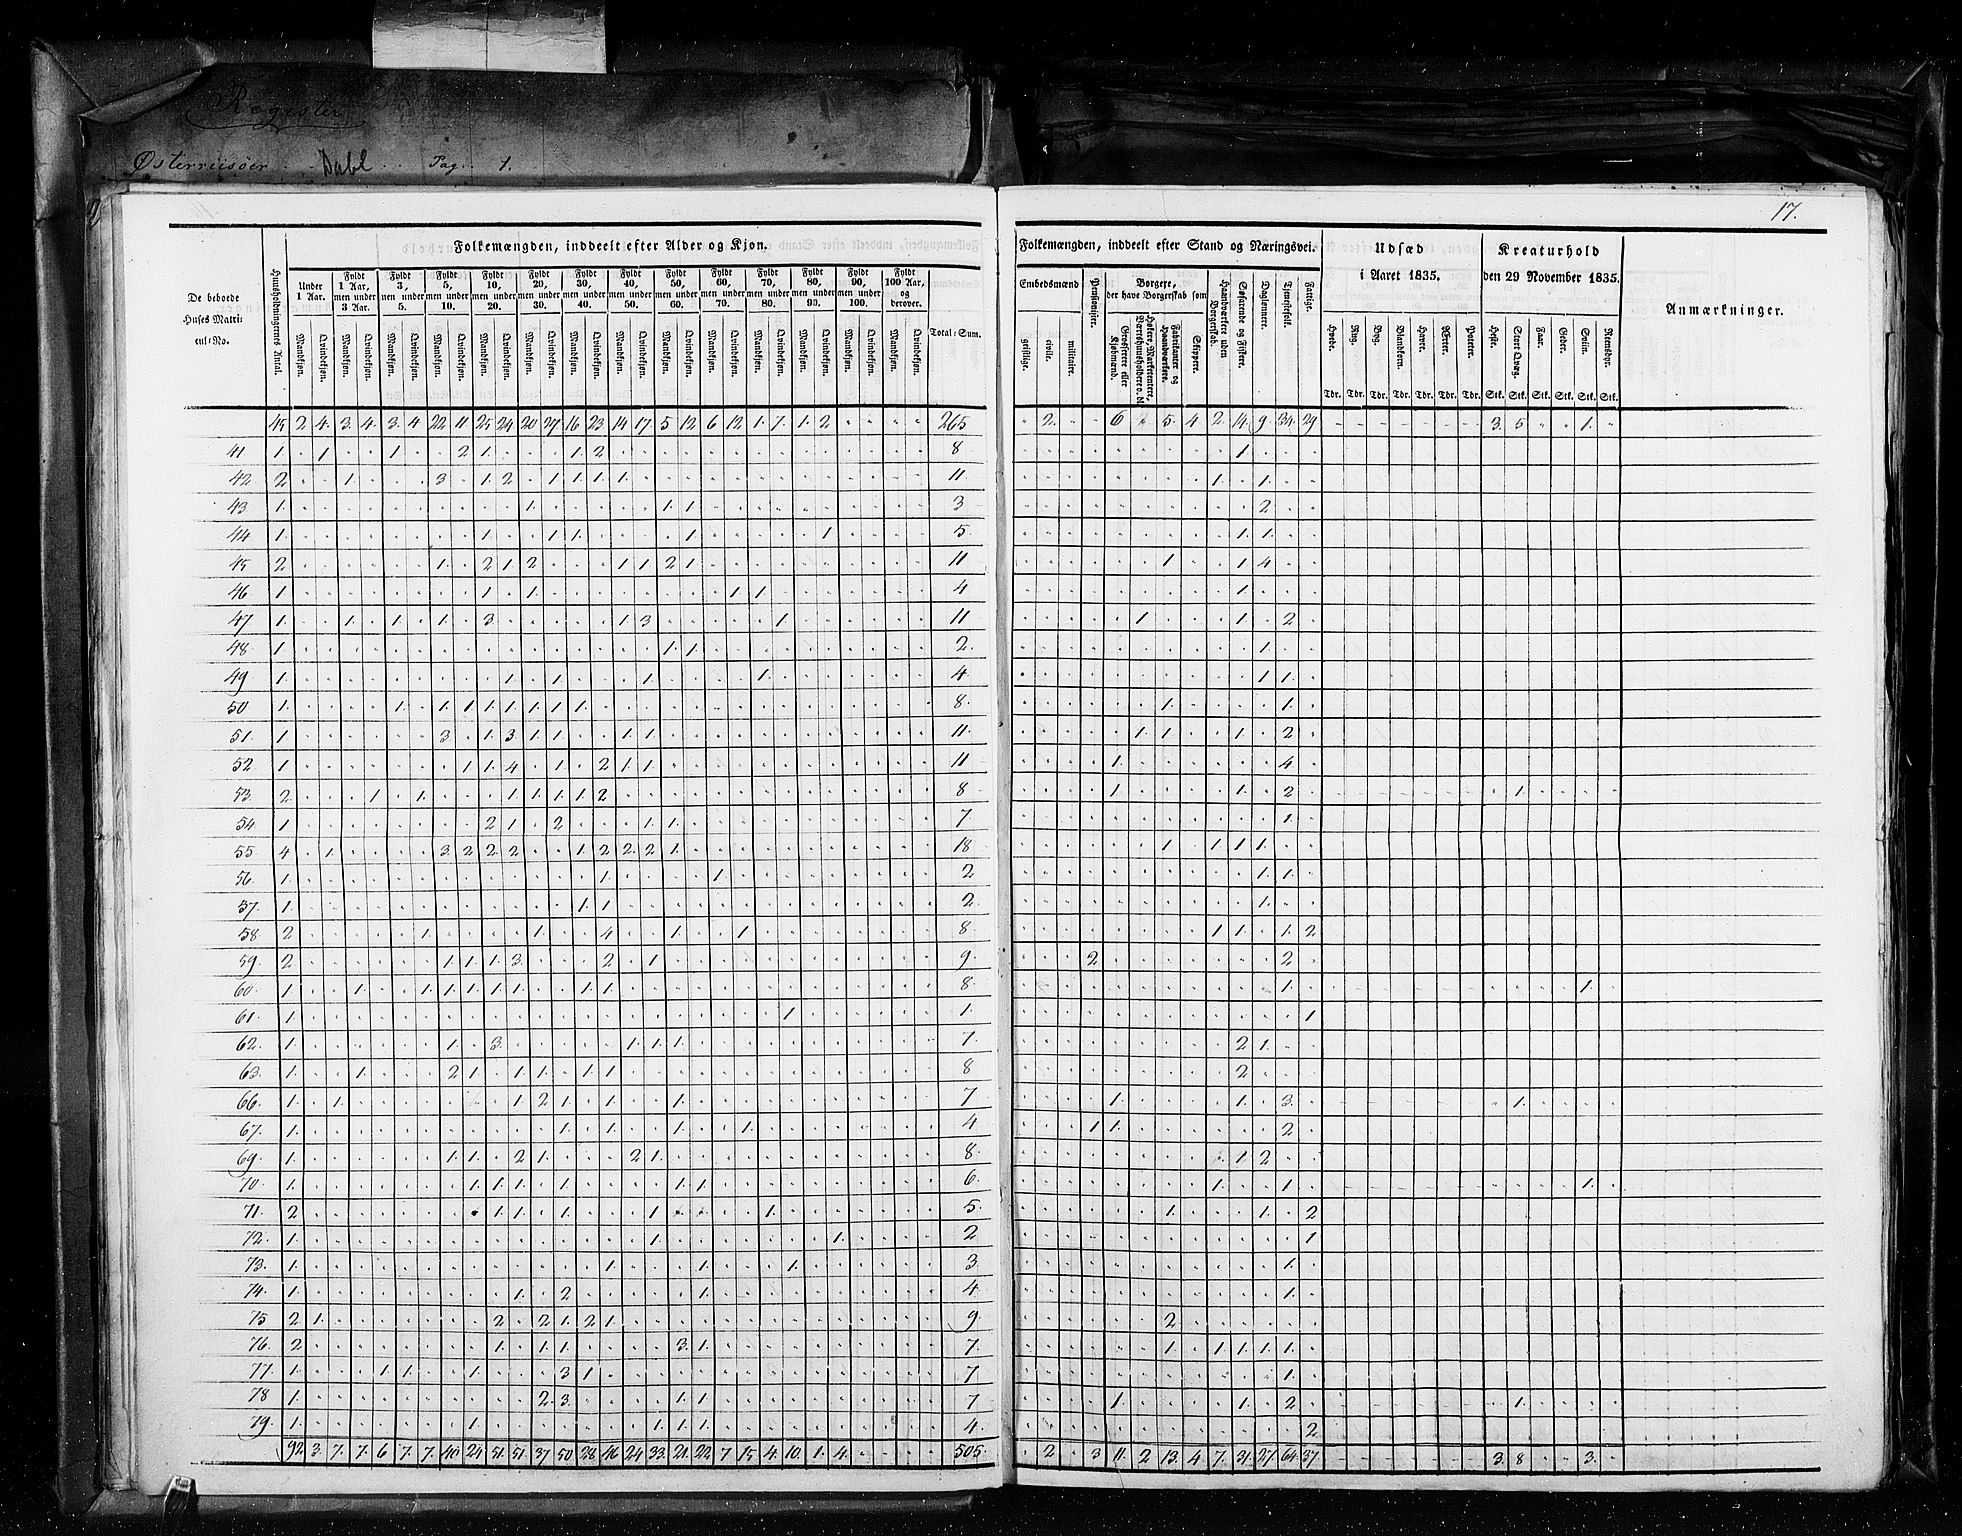 Register
Østerriisøer Dahl Pag. 1.
17.
Folkemængden, inddeelt efter Alder og Kjøn.
De beboede Huses Matricul-No.
Huusholdningernes Antal.
Under 1 Aar.
Fyldt 1 Aar, men under 3 Aar.
Fyldt 3, men under 5.
Fyldt 5, men under 10.
Fyldt 10, men under 20.
Fyldt 20, men under 30.
Fyldt 30, men under 40.
Fyldt 40, men under 50.
Fyldt 50, men under 60.
Fyldt 60, men under 70.
Fyldt 70, men under 80.
Fyldt 80, men under 90.
Fyldt 90, men under 100.
Fyldt 100 Aar, og derover.
Mandkjøn. Qvindekjøn.
Total-Sum.
45 2. 4. 3. 4. 3. 4. 22 11 25 24 20 27 16 23 14 17. 5 12 6 12 1. 7. 1. 2 265
41 1. 1 1 2 1. 1. 2 8
42 2 1. 3 1. 2 1 1. 1. 1. 11.
43 1. 1. 1. 1. 3
44 1. 1. 1 1. 1. 1 5
45 2 1. 2 1. 2 1. 1 2 1. 11
46 1. 1. 1. 1. 1. 4
47 1. 1. 1. 1. 3 1. 3 1. 11
48 1 1. 1. 2.
49 1. 1. 1. 1. 1. 4
50 1. 1. 1. 1 1. 1. 1. 1. 1. 8.
51. 1 3 1. 3. 1. 1. 1. 1. 11.
52 1. 1 1. 4 1. 2 1. 1. 11
53. 2. 1. 1. 1. 1. 1. 1. 2 8
54 1 2 1. 2 1. 1. 7
55 4 1. 3 2 2 2 1. 2 2 2 1. 18
56. 1. 1. 1. 2
57. 1. 1. 1. 2.
58 2 1. 1. 4 1. 1. 8.
59. 2 1. 1. 1. 3. 2 1. 9.
60. 1. 1. 1. 1. 1. 1. 1. 1. 1. 8.
61. 1. 1. 1.
62. 1. 1. 3. 1. 1. 1. 7.
63. 1. 1. 2 1. 1. 1. 1. 1. 8
66. 1. 1. 1. 2 1. 1. 1. 7
67. 1. 1. 1. 1. 1. 4
69. 1. 1. 1. 2 1. 2 1. 8.
70. 1. 1. 1. 1. 1. 1. 1. 6.
71. 2 1. 1. 1. 1. 1. 5.
72. 1. 1. 1. 2
73. 1. 1. 1. 1. 3
74. 1. 1. 2 1. 4
75 2 1. 2 2 1. 2 1. 9.
76. 2 1. 1. 1. 3. 1. 7.
77. 1. 1. 1. 1. 3 1. 7
78 1. 2. 3. 1. 1. 7
79. 1. 1. 1. 1. 1. 4.
92. 3. 7. 7. 6 7. 7. 40 24 51. 51. 37 50 28 46 24 33. 21. 22 7 15 4. 10. 1. 4. 505.
Folkemængden, inddeelt efter Stand og Næringsvei.
Embedsmænd
geistlige. civile. militaire.
Pensionister.
Borgere, der have Borgerskab som
Grosserere eller Kjøbmænd.
Høkere, Marketentere, Værtshuusholdere o. dl.
Fabrikanter og Haandværkere.
Skippere.
Haandværkere uden Borgerskab.
Søfarende og Fiskere.
Daglønnere.
Tjenestefolk.
Fattige.
Udsæd i Aaret 1835.
Hvede. Rug. Byg. Blandkorn. Havre. Ærter. Poteter.
Tdr. Tdr. Tdr. Tdr. Tdr. Tdr. Tdr.
Kreaturhold den 29 November 1835.
Heste. Stort Qvæg. Faar. Geder. Sviin. Reensdyr.
Stk. Stk. Stk. Stk. Stk. Stk.
Anmærkninger.
2. 6 5. 4 2. 14. 9. 34. 29 3. 5 1.
1.
1. 1.
2
1. 1.
1. 1. 4
1.
1. 1. 2
1.
1. 1.
1. 1.
1. 1. 1. 2
1. 4
1. 1. 2 1.
1.
1. 1. 1. 1.
1. 1.
1.
1. 1. 1. 2
2 2
1. 1.
1
2 1.
2
1. 1. 3. 1.
1 1. 2
1. 2
1. 1. 1.
1. 1. 2
1
1.
1.
2
1. 1. 1. 1. 1.
1.
1. 1. 2 1.
2
2 3 11. 2 13. 4 7. 31. 27. 64. 37. 3. 8 3.